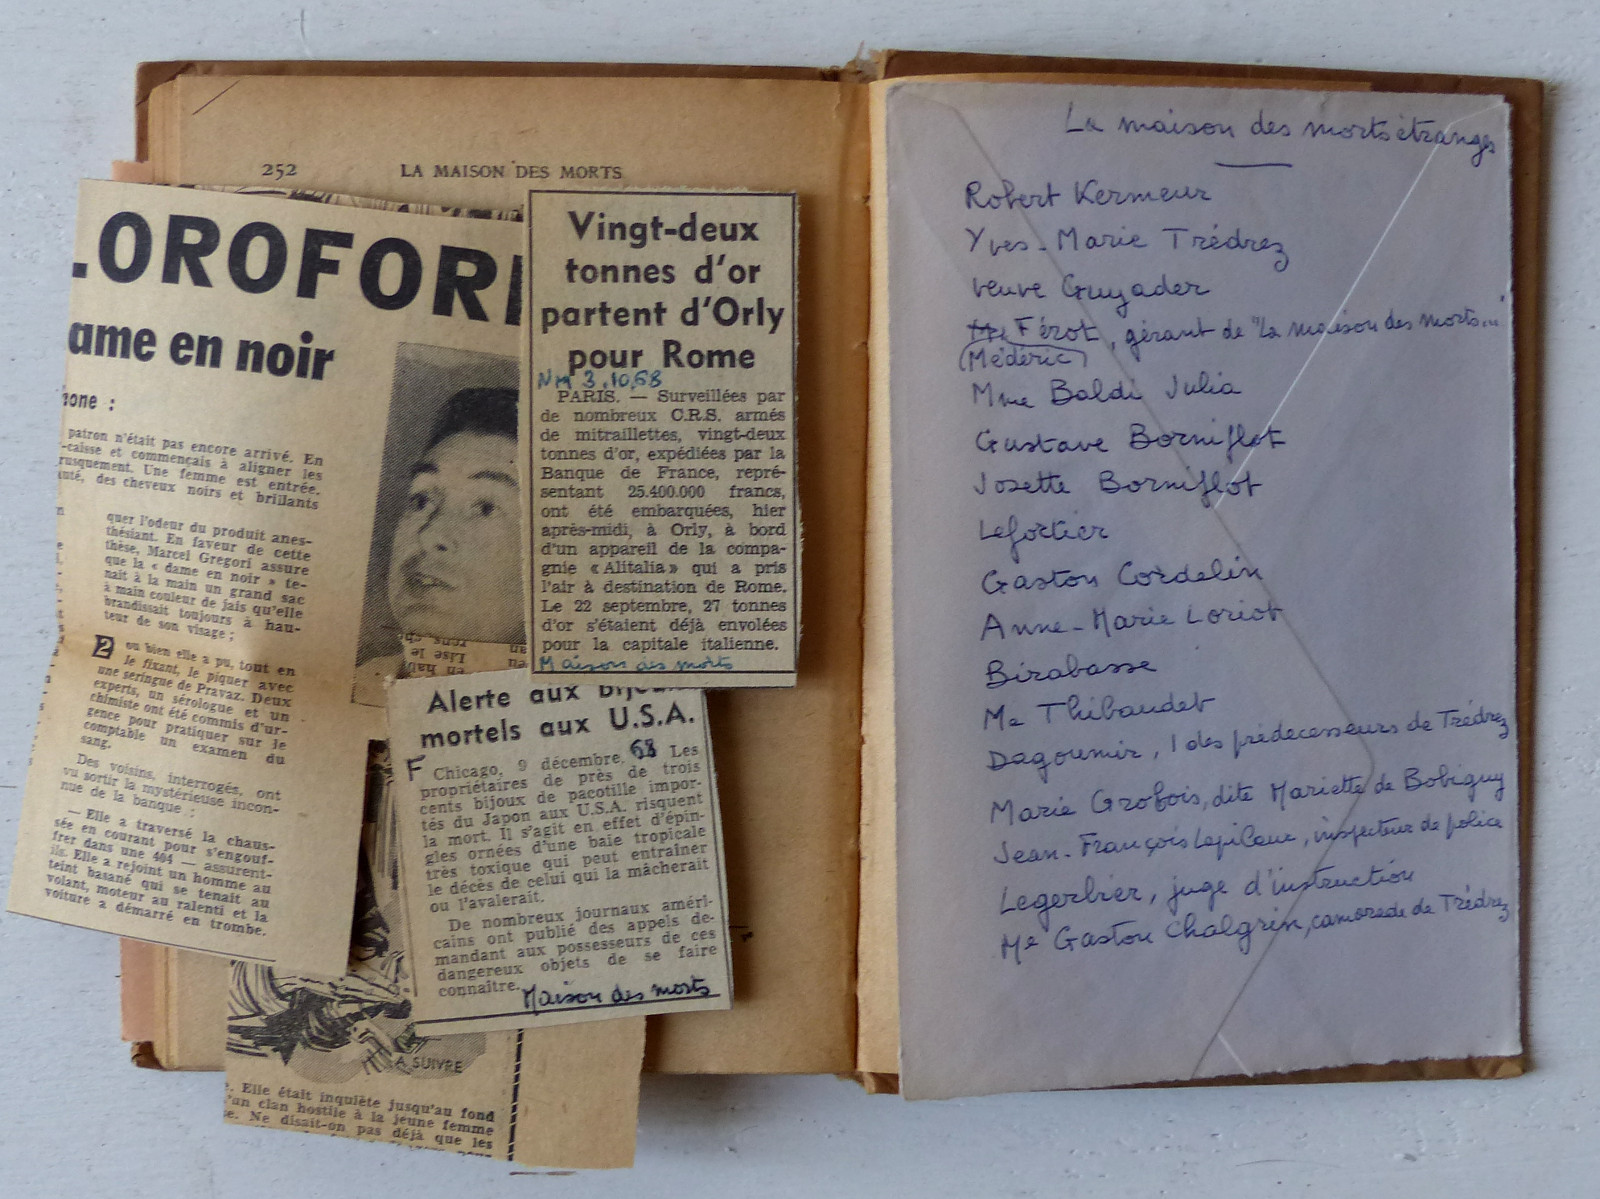 252 LA MAISON DES MORTS
LOROFOR
ame en noir
one :
patron n'était pas encore arrivé. En
-caisse et commençais à aligner les
rusquement. Une femme est entrée.
uté, des cheveux noirs et brillants
quer l'odeur du produit anes-
thésiant. En faveur de cette
thèse, Marcel Gregori assure
que la « dame en noir » te-
nait à la main un grand sac
à main couleur de jais qu'elle
brandissait toujours à hau-
teur de son visage ;
2 ou bien elle a pu, tout en
le fixant, le piquer avec
une seringue de Pravaz. Deux
experts, un sérologue et un
chimiste ont été commis d'ur-
gence pour pratiquer sur le
comptable un examen du
sang.
Des voisins, interrogés, ont
vu sortir la mystérieuse incon-
nue de la banque :
— Elle a traversé la chaus-
sée en courant pour s'engouf-
frer dans une 404 — assurent-
ils. Elle a rejoint un homme au
teint basané qui se tenait au
volant, moteur au ralenti et la
voiture a démarré en trombe.
Vingt-deux
tonnes d'or
partent d'Orly
pour Rome
NM 3.10.68
PARIS. — Surveillées par
de nombreux C.R.S. armés
de mitraillettes, vingt-deux
tonnes d'or, expédiées par la
Banque de France, repré-
sentant 25.400.000 francs,
ont été embarquées, hier
après-midi, à Orly, à bord
d'un appareil de la compa-
gnie « Alitalia » qui a pris
l'air à destination de Rome.
Le 22 septembre, 27 tonnes
d'or s'étaient déjà envolées
pour la capitale italienne.
Maison des morts
Alerte aux bijoux
mortels aux U.S.A.
F Chicago, 9 décembre, 68 Les
propriétaires de près de trois
cents bijoux de pacotille impor-
tés du Japon aux U.S.A. risquent
la mort. Il s'agit en effet d'épin-
gles ornées d'une baie tropicale
très toxique qui peut entraîner
le décès de celui qui la mâcherait
ou l'avalerait.
De nombreux journaux améri-
cains ont publié des appels de-
mandant aux possesseurs de ces
dangereux objets de se faire
connaître.
Maison des morts
A SUIVRE
. Elle était inquiète jusqu'au fond
'un clan hostile à la jeune femme
e. Ne disait-on pas déjà que les
La maison des morts étranges
Robert Kermeur
Yves-Marie Trédrez
veuve Guyader
Me Férot, gérant de "la maison des morts..."
(Médéric)
Mme Baldi Julia
Gustave Borniflot
Josette Borniflot
Lefortier
Gaston Cordelin
Anne-Marie Loriot
Birabasse
Me Thibaudet
Dagoumir, 1 des prédecesseurs de Trédrez
Marie Grobois, dite Mariette de Bobigny
Jean-François Lepicœur, inspecteur de police
Legerbier, juge d'instruction
Me Gaston Chalgrin, camarade de Trédrez